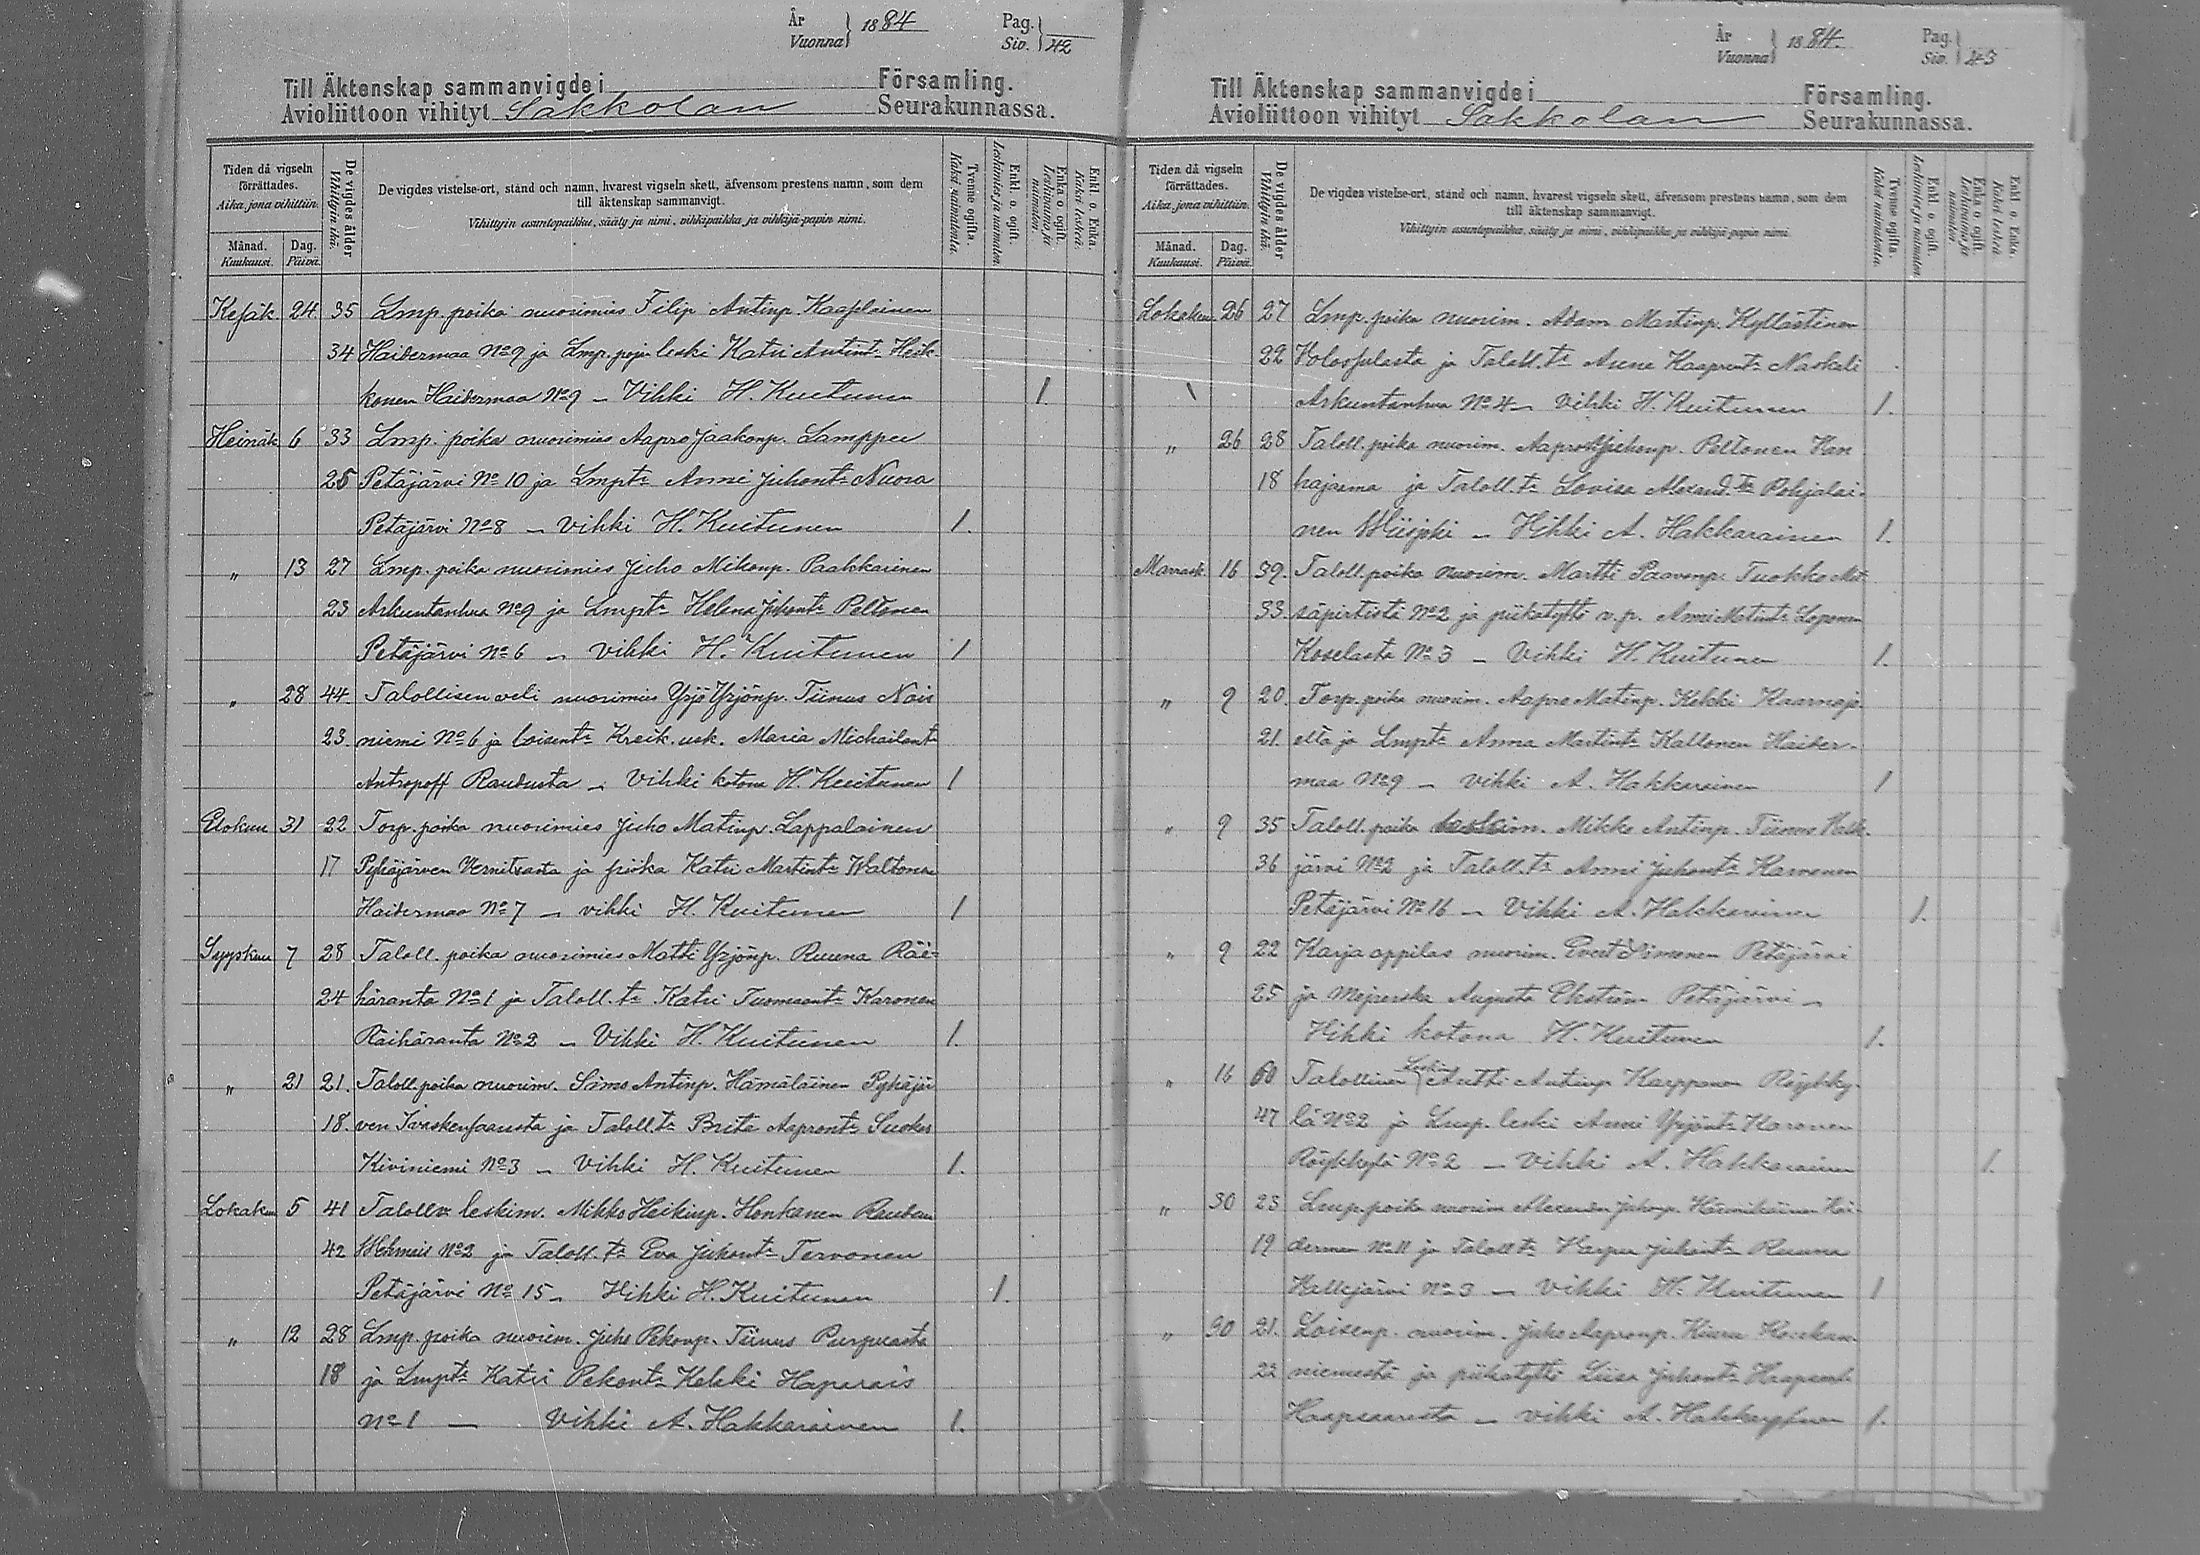 År Vuonna } 1884 Pag. Siv. } 42
Till Äktenskap sammanvigde i Församling.
Avioliittoon vihityt Sakkolan Seurakunnassa.
Tiden då vigseln förrättades.
Aika, jona vihittiin.
Månad. Kuukausi.
Dag. Päivä.
De vigdes ålder
Vihittyin ikä.
De vigdes vistelse-ort, stånd och namn, hvarest vigseln skett, äfvensom prestens namn, som dem
till äktenskap sammanvigt.
Vihittyin asuntopaikka, sääty ja nimi, vihkipaikka ja vihkijä-papin nimi.
Tvenne ogifta.
Kaksi naimatonta.
Enkl. o. ogift.
Leskimies ja naimaton.
Enka o. ogift.
Leskivaimo ja naimaton.
Enkl. o. Enka.
Kaksi leskeä.
Kesäk. 24 35 Lmp. poika nuorimies Filip Antinp. Kaaslainen
34 Haidermaa No 9 ja Lmp. pojan leski Katri Antint. Heik-
konen Haidermaa No 9 – Vihki H. Kuitunen 1.
Heinäk 6 33 Lmp. poika nuorimies Aapro Jaakonp. Lamppu
25 Petäjärvi No 10 ja Lmpt. Anni Juhont. Nuora
Petäjärvi No 8 – Vihki H. Kuitunen 1.
„ 13 27 Lmp. poika nuorimies Juho Mikonp. Paakkainen
23 Arkuntanhua No 9 ja Lmpt. Helena Juhont. Peltonen
Petäjärvi No 6 – Vihki H. Kuitunen 1
„ 28 44 Talollisen veli nuorimies Yrjö Yrjönp. Tiinus Nois
23. niemi No 6 ja loisent. Kreik. usk. Maria Michailant.
Antropoff Raudusta – Vihki kotona H. Kuitunen 1
Elokuu 31 22 Torp. poika nuorimies Juho Matinp. Lappalainen
17 Pyhäjärven Yernitsasta ja piika Katri Martint. Waltonen
Haidermaa No 7 – vihki H. Kuitunen 1
Syyskuu 7 28 Taloll. poika nuorimies Matti Yrjönp. Ruuna Räi-
24 häranta No 1 ja Taloll. t. Katri Tuomaant. Karonen
Räihäranta No 2 – Vihki H. Kuitunen 1.
„ 21 21. Taloll. poika nuorim. Simo Antinp. Hämäläinen Pyhäjär
18. ven Ivaskensaarista ja Taloll. t. Brita Aapront. Suokas
Kiviniemi No 3 – Vihki H. Kuitunen 1.
Lokakuu 5 41 Taloll. leskim. Mikko Heikinp. Honkanen Raudun
42 Wehmais No 2 ja Taloll. t. Eva Juhont. Tervonen
Petäjärvi No 15 – Vihki H. Kuitunen 1.
„ 12 28 Lmp. poika nuorim. Juho Pekonp. Tiinus Purpuasta
18 ja Lmpt. Katri Pekont. Kekki Haparais
No 1 – Vihki A. Hakkarainen 1.
År Vuonna } 1884. Pag. Siv. } 43
Till Äktenskap sammanvigde i Församling.
Avioliittoon vihityt Sakkolan Seurakunnassa.
Tiden då vigseln förrättades.
Aika, jona vihittiin.
Månad. Kuukausi.
Dag. Päivä.
De vigdes ålder
Vihittyin ikä.
De vigdes vistelse-ort, stånd och namn, hvarest vigseln skett, äfvensom prestens namn, som dem
till äktenskap sammanvigt.
Vihittyin asuntopaikka, sääty ja nimi, vihkipaikka ja vihkijä-papin nimi.
Tvenne ogifta.
Kaksi naimatonta.
Enkl. o. ogift.
Leskimies ja naimaton.
Enka o. ogift.
Leskivaimo ja naimaton.
Enkl. o. Enka.
Kaksi leskeä.
Lokakuu 26 27 Lmp. poika nuorim. Adam Martinp. Kyllästinen
22 ja Taloll. t. Anna Kaapront. Naskali
Arkuntanhua No 4 – Vihki H. Kuitunen 1.
„ 26 28 Taloll. poika nuorim. Aapro Peltonen Han
18 hajoma ja Taloll. t. Lovisa Alexand. t. Pohjalai-
nen Wiisjoki – Vihki A. Hakkarainen 1.
Marrask. 16 39. Taloll. poika nuorim. Martti Paavonp. Tuokko Met
33. säpirtistä No 2 ja piikatyttö v. p. Anni Matint. Loponen
Koselasta No 3 – Vihki H. Kuitunen 1.
„ 9 20. Torp. poika nuorim. Aapro Matinp. Kekki Kaarnajo
21. elta ja Lmpt. Anna Martint. Kaltonen Haider-
maa No 9 – vihki A. Hakkarainen 1
„ 9 35 Taloll. poika leskim. Mikko Antinp. Tiinus Valk-
36 järvi No 2 ja Taloll. t. Anni Juhont. Karvonen
Petäjärvi No 16 – Vihki A. Hakkarainen 1.
„ 9 22 Karja oppilas nuorim. Evert Simonen Petäjärvi
25 ja Mejerska Augusta Ekström Petäjärvi –
Vihki kotona H. Kuitunen 1.
„ 16 60 Talollinen Leski Antti Antinp. Karppanen Röykky-
47 lä No 2 ja Lmp. leski Anni Yrjönt. Karonen
Röykkylä No 2 – Vihki A. Hakkarainen 1.
„ 30 23 Lmp. poika nuorim Alexander Juhonp. Hännikäinen Hai-
19 dermaa No 11 ja Taloll t. Juhont. Ruuna
No 3 – Vihki H. Kuitunen 1
„ 30 21. Loisenp. nuorim. Juho Aapronp. Kiuru
22 niemestä ja piikatyttö Liisa Juhont.
Haapsaaresta – vihki A. Hakkarainen 1.